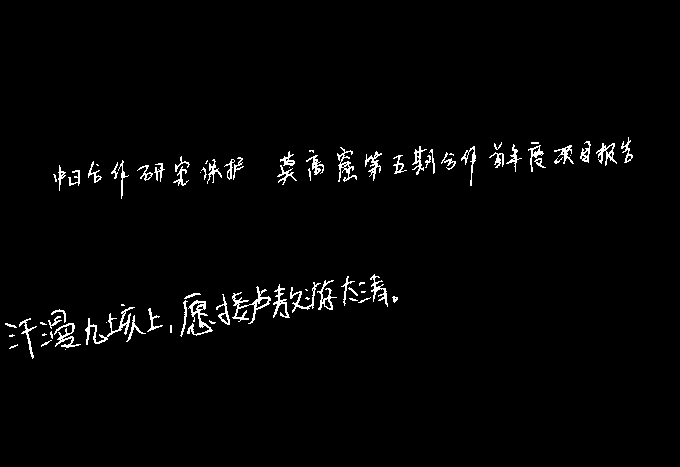 中日合作研究保护 莫高窟第五期合作首年度项目报告
汗漫九垓上，愿接卢敖游太清。